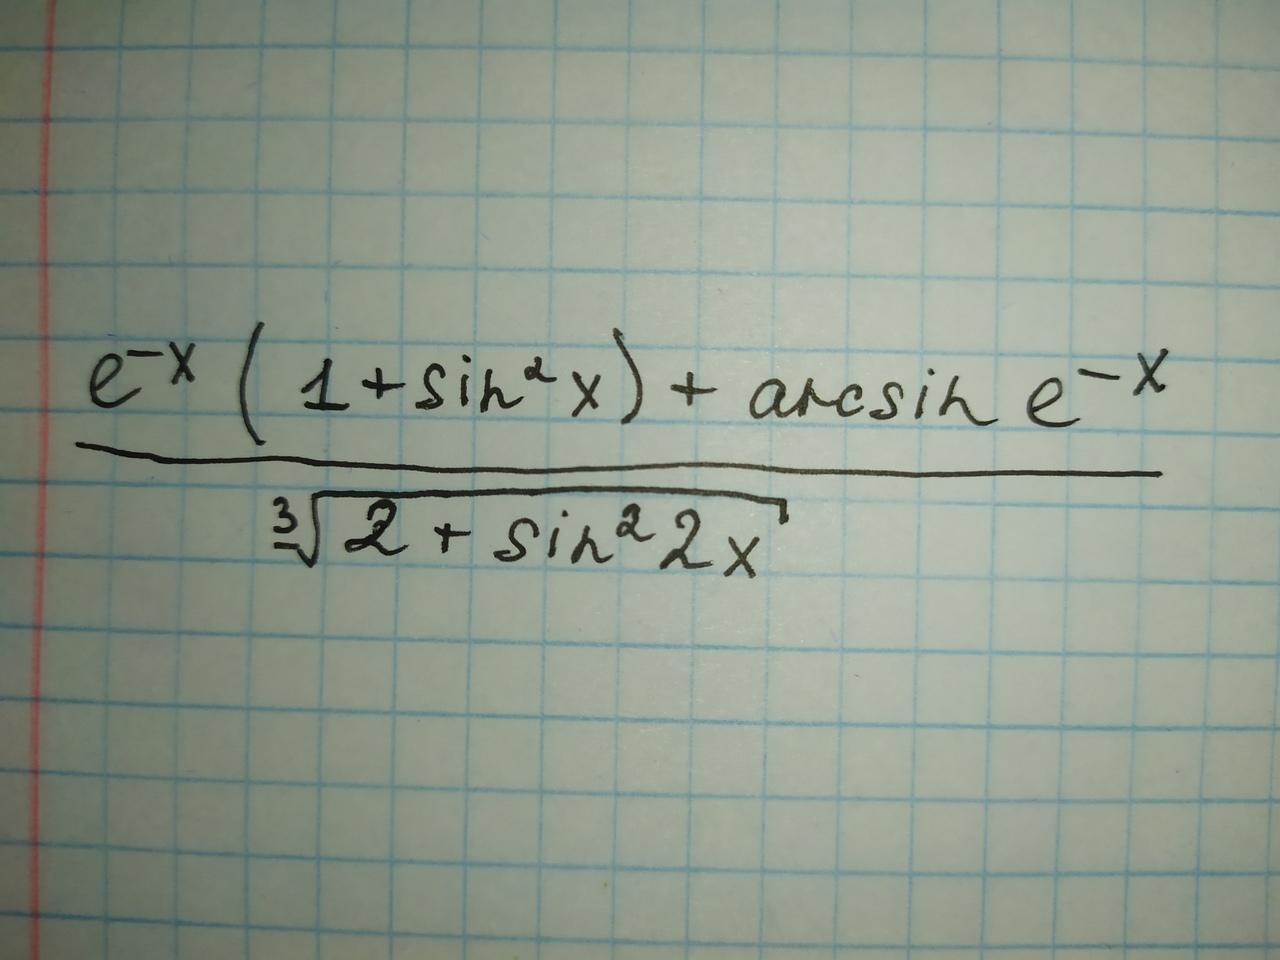 e⁻ˣ (1 + sin²x) + arcsin e⁻ˣ
∛2 + sin²2x